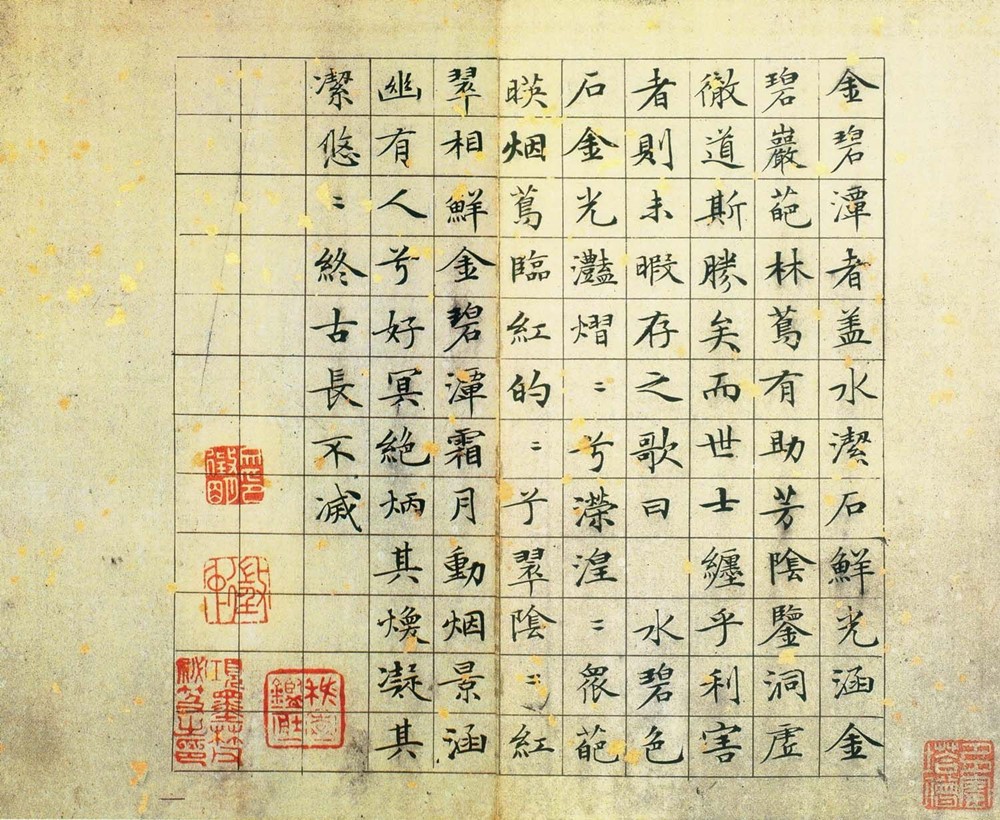 金碧潭者盖水潔石鮮光涵金
碧巖葩林蔦有助芳陰鑒洞虛
徹道斯勝矣而世士纏乎利害
者則未暇存之歌曰 水碧色
石金光灩熠〻兮濚湟〻衆葩
暎烟蔦臨紅的〻兮翠陰〻紅
翠相鮮金碧潭霜月動烟景涵
幽有人兮好冥絶炳其煥凝其
潔悠〻終古長不减
項墨林父秘笈之印